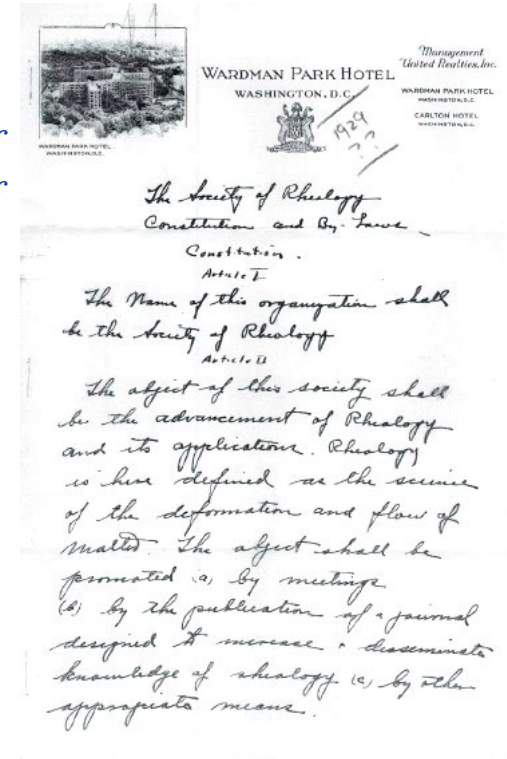 WARDMAN PARK HOTEL
WASHINGTON, D.C.
Management
United Realties, Inc.
WARDMAN PARK HOTEL
WASHINGTON, D.C.
CARLTON HOTEL
WASHINGTON, D.C.
WARDMAN PARK HOTEL
WASHINGTON, D.C.
1929
? ?
The Society of Rheology
Constitution and By-Laws
Constitution.
Article I
The Name of this organization shall
be the Society of Rheology
Article II
The object of this society shall
be the advancement of Rheology
and its applications. Rheology
is here defined as the science
of the deformation and flow of
matter. The object shall be
promoted (a) by meetings
(b) by the publication of a journal
designed to increase & disseminate
knowledge of rheology (c) by other
appropriate means.